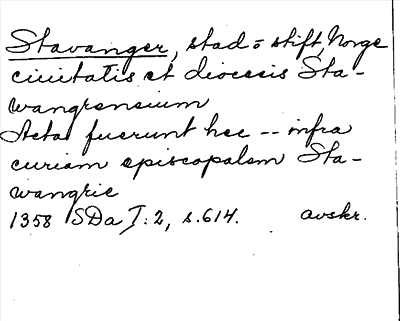 Stavanger, stad o stift, Norge
ciuitatis et diocesis Sta-
wangrensium
Acta fuerunt hec -- infra
curiam episcopalem Sta-
wangrie
1358 SDa I:2, s.614. avskr.